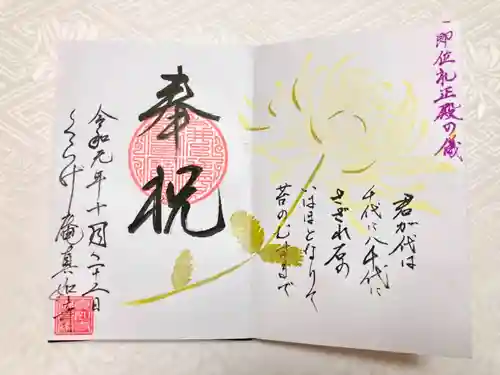 即位礼正殿の儀
君が代は
千代に八千代に
さざれ石の
いはほとなりて
苔のむすまで
奉祝
令和元年十月二十二日
庵真如寺